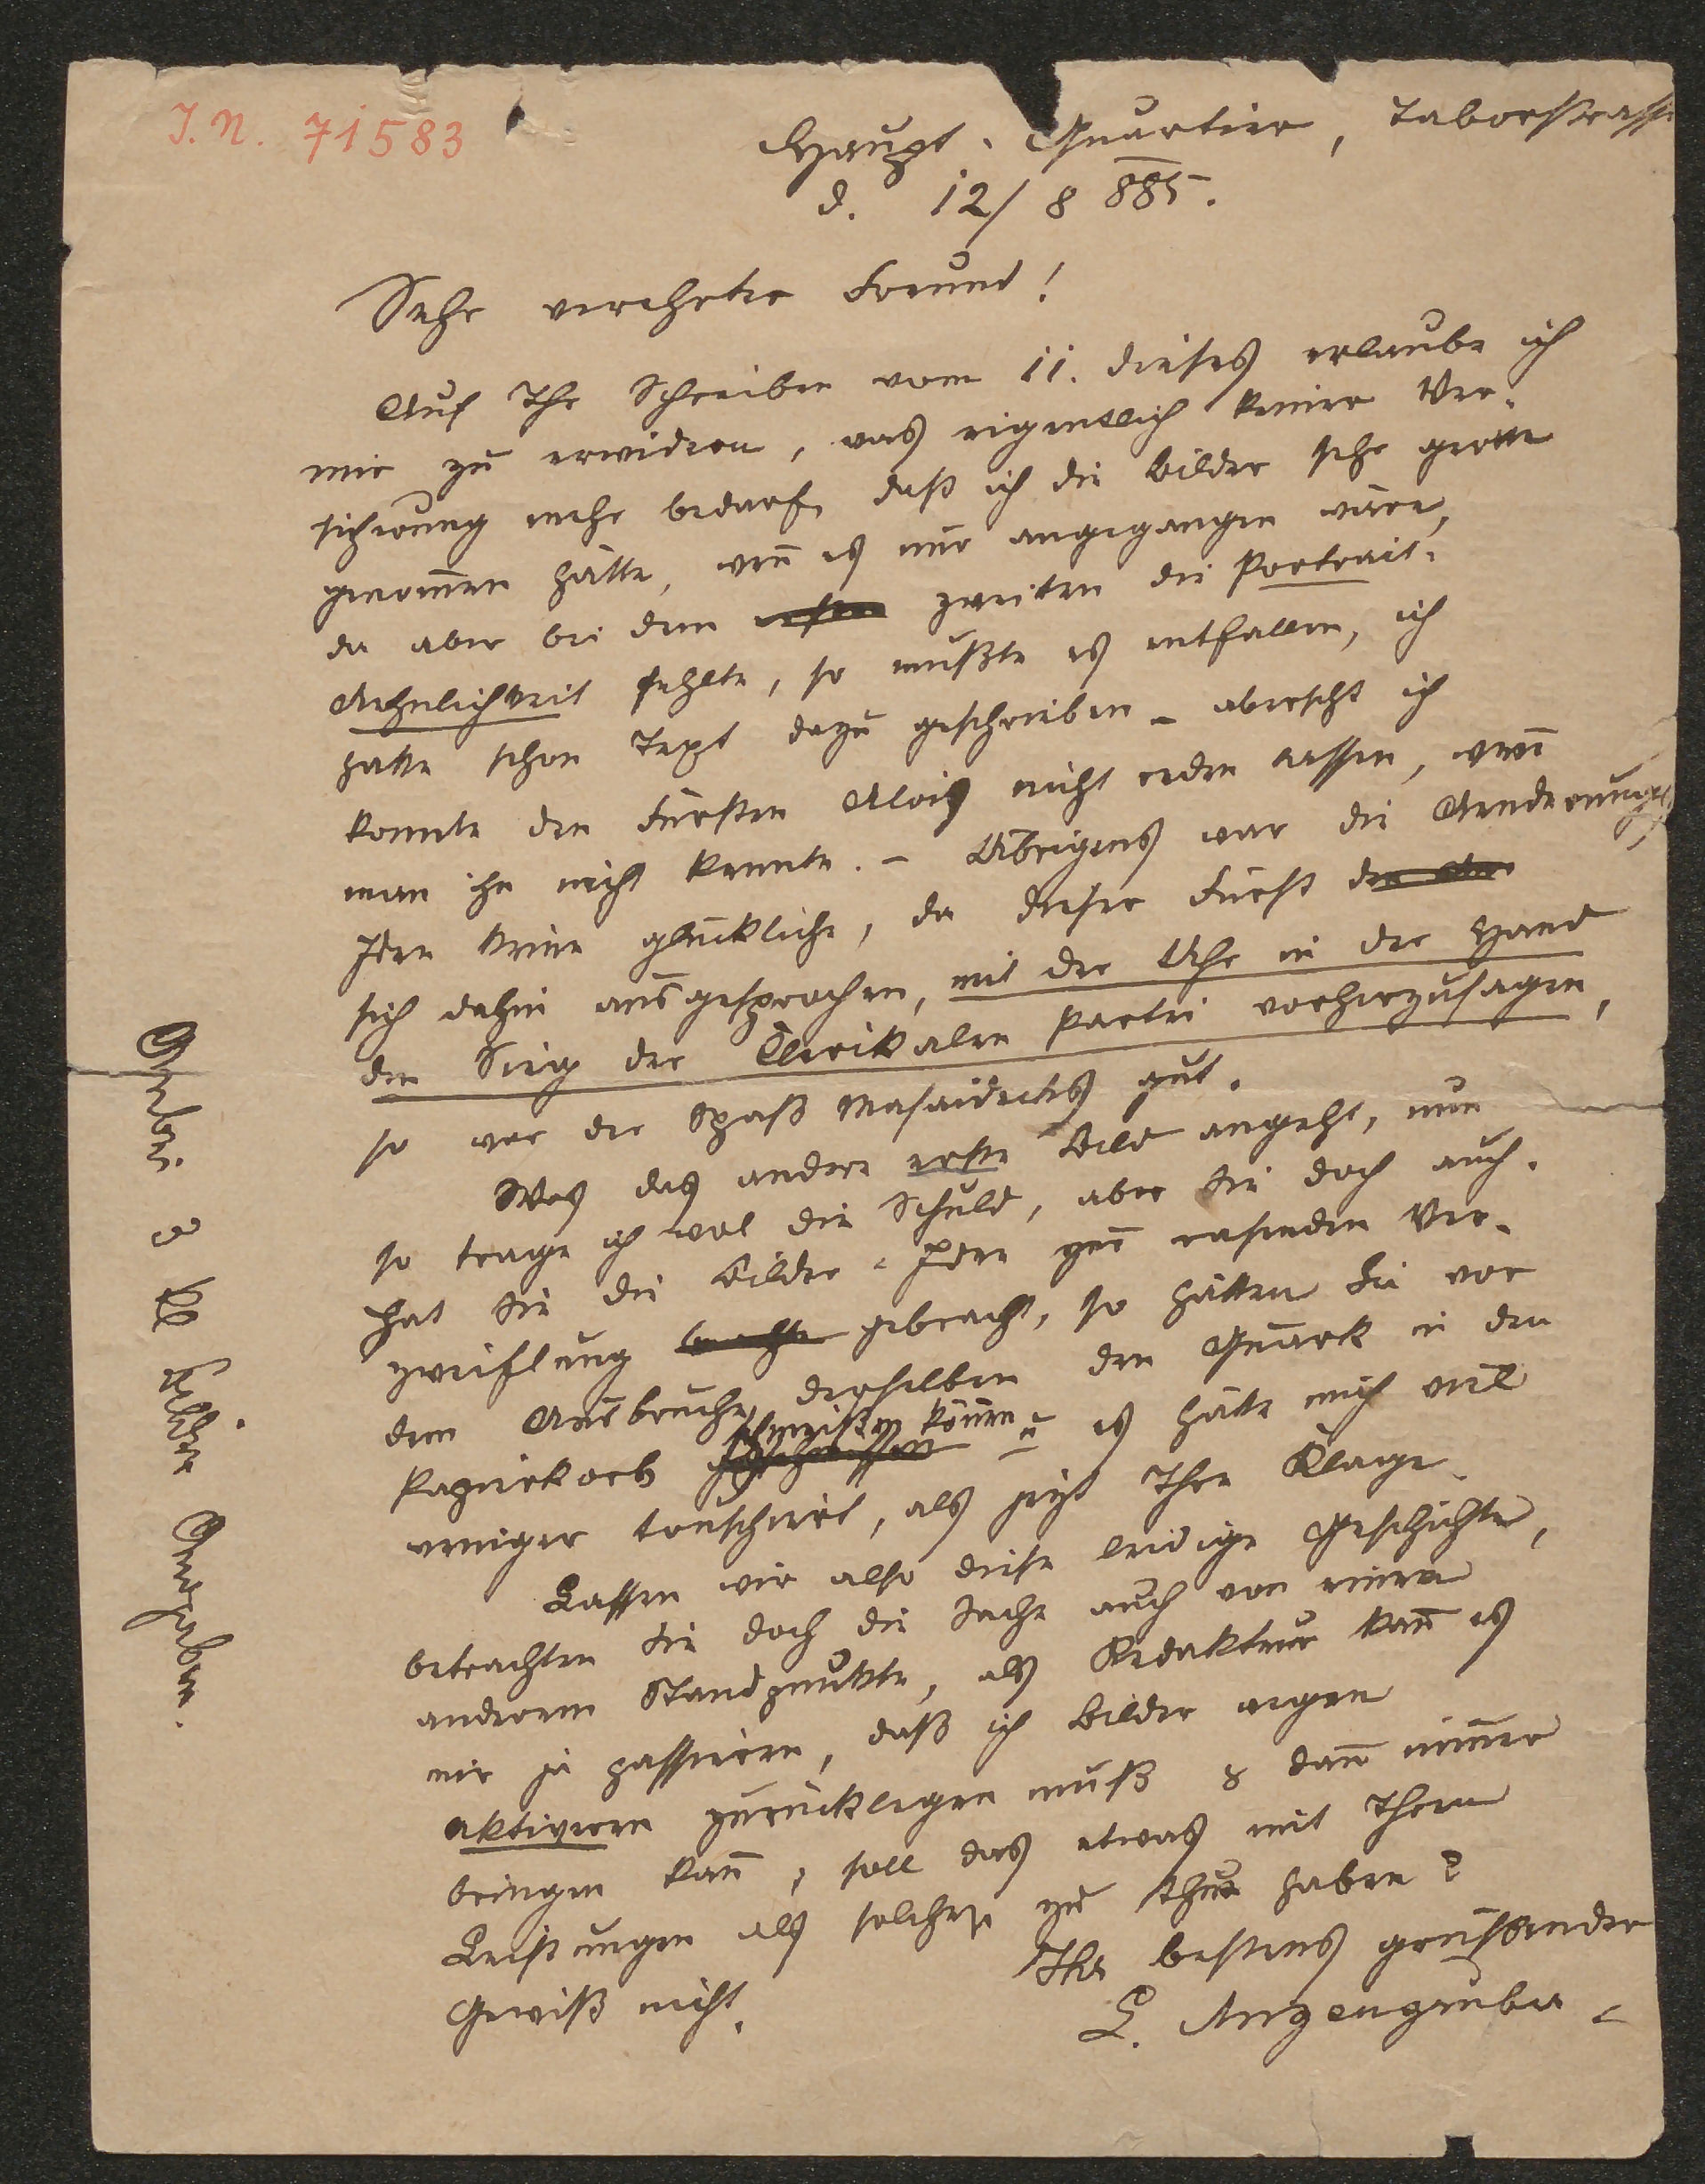 J.N. 71583
Haupt-Quartier, Taborstrasse
d. 12/8 885.
Sehr verehrter Freund!
Auf Ihr Schreiben vom 11. dieses erlaube ich
mir zu erwidern, was eigentlich keiner Ver-
sicherung mehr bedarf, daß ich die Bilder sehr gerne
genom̄en hätte, wen̄ es nur angegangen wäre,
da aber bei dem ersten zweiten die Portrait-
Aehnlichkeit fehlte, so mußte es entfallen, ich
hatte schon Text dazu geschrieben – aber ich
konnte den Fürsten Alois nicht reden lassen, wen̄
man ihn nicht kennte. – Übrigens war die Aenderungs-
Idee keine glückliche, da dieser Fürst
sich dahin ausgesprochen, mit der Uhr in der Hand
den Sieg der Clerikalen Partei vorherzusagen,
so war der Spaß gut.
Was das andere erste Bild angeht, nun
so trage ich wol die Schuld, aber Sie doch auch.
Hat Sie die Bilder-Idee zur rasenden Ver-
zweiflung brachte gebracht, so hätten Sie vor
dem Ausbruche derselben den Quark in den
Papierkorb geschmissen schmeißen kön̄en – es hätte mich viel
weniger touschirt, als jetzt Ihre Klage.
Lassen wir also diese leidige Geschichte,
betrachten Sie doch die Sache auch von einem
anderem Standpunkte, als Redakteur kan̄ es
mir ja passieren, daß ich Bilder wegen
aktiveren zurücklegen muß & dan̄ nim̄er
bringen kan̄, soll das etwas mit Ihren
Leistungen als solchen zu thun haben?
Gewiß nicht.
Ihr bestens grüßender
L. Anzengruber